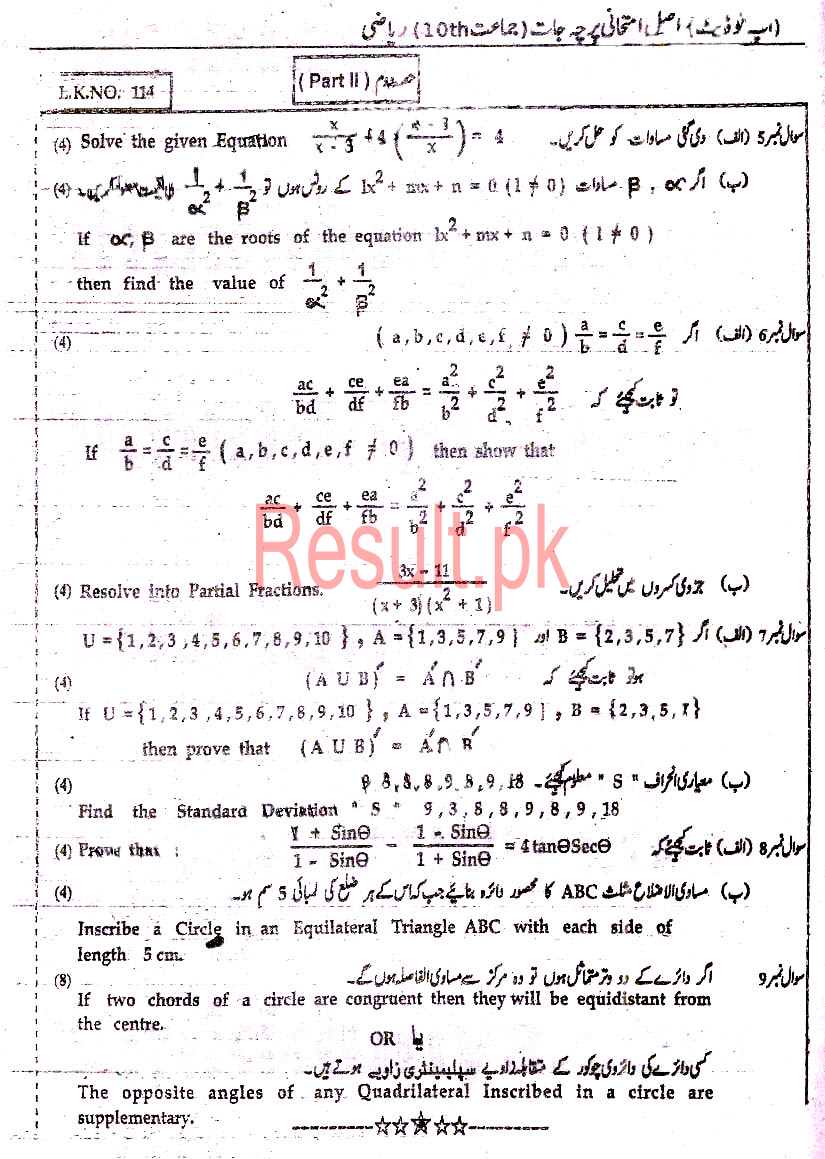 (اپ ٹوڈیٹ) اصل امتحانی پرچہ جات (جماعت 10th) ریاضی
L.K.NO: 114
(Part II) حصہ دوم
سوال نمبر 5 (الف) دی گئی مساوات کو حل کریں۔ x/(x - 3) + 4((x - 3)/x) = 4 Solve the given Equation (4)
(ب) اگر α , β مساوات lx² + mx + n = 0 (l ≠ 0) کے روٹس ہوں تو 1/α² + 1/β² (4)
If α, β are the roots of the equation lx² + mx + n = 0 (l ≠ 0)
then find the value of 1/α² + 1/β²
سوال نمبر 6 (الف) اگر a/b = c/d = e/f (a,b,c,d,e,f ≠ 0) (4)
تو ثابت کیجئے کہ ac/bd + ce/df + ea/fb = a²/b² + c²/d² + e²/f²
If a/b = c/d = e/f (a,b,c,d,e,f ≠ 0) then show that
ac/bd + ce/df + ea/fb = a²/b² + c²/d² + e²/f²
Result.pk
(ب) جزوی کسروں میں تحلیل کریں۔ (3x - 11)/((x + 3)(x² + 1)) Resolve into Partial Fractions. (4)
سوال نمبر 7 (الف) اگر U = {1,2,3,4,5,6,7,8,9,10} , A = {1,3,5,7,9} اور B = {2,3,5,7}
ہو تو ثابت کیجئے کہ (A U B)′ = A′ ∩ B′ (4)
If U = {1,2,3,4,5,6,7,8,9,10} , A = {1,3,5,7,9] , B = {2,3,5,7}
then prove that (A U B)′ = A′ ∩ B′
(ب) معیاری انحراف "S" معلوم کیجئے۔ 9 8,8,8,9,8,9,18 (4)
Find the Standard Deviation "S" 9,3,8,8,9,8,9,18
سوال نمبر 8 (الف) ثابت کیجئے کہ (1 + Sinθ)/(1 - Sinθ) - (1 - Sinθ)/(1 + Sinθ) = 4tanθSecθ Prove that : (4)
(ب) مساوی الاضلاع مثلث ABC کا محصور دائرہ بنائیے جب کہ اس کے ہر ضلع کی لمبائی 5 سم ہو۔ (4)
Inscribe a Circle in an Equilateral Triangle ABC with each side of
length 5 cm.
سوال نمبر 9 اگر دائرے کے دو وتر متماثل ہوں تو وہ مرکز سے مساوی الفاصلہ ہوں گے۔ (8)
If two chords of a circle are congruent then they will be equidistant from
the centre.
OR یا
کسی دائرے کی دائروی چوکور کے متقابلہ زاویے سپلیمنٹری زاویے ہوتے ہیں۔
The opposite angles of any Quadrilateral Inscribed in a circle are
supplementary.
---------☆☆★☆☆---------